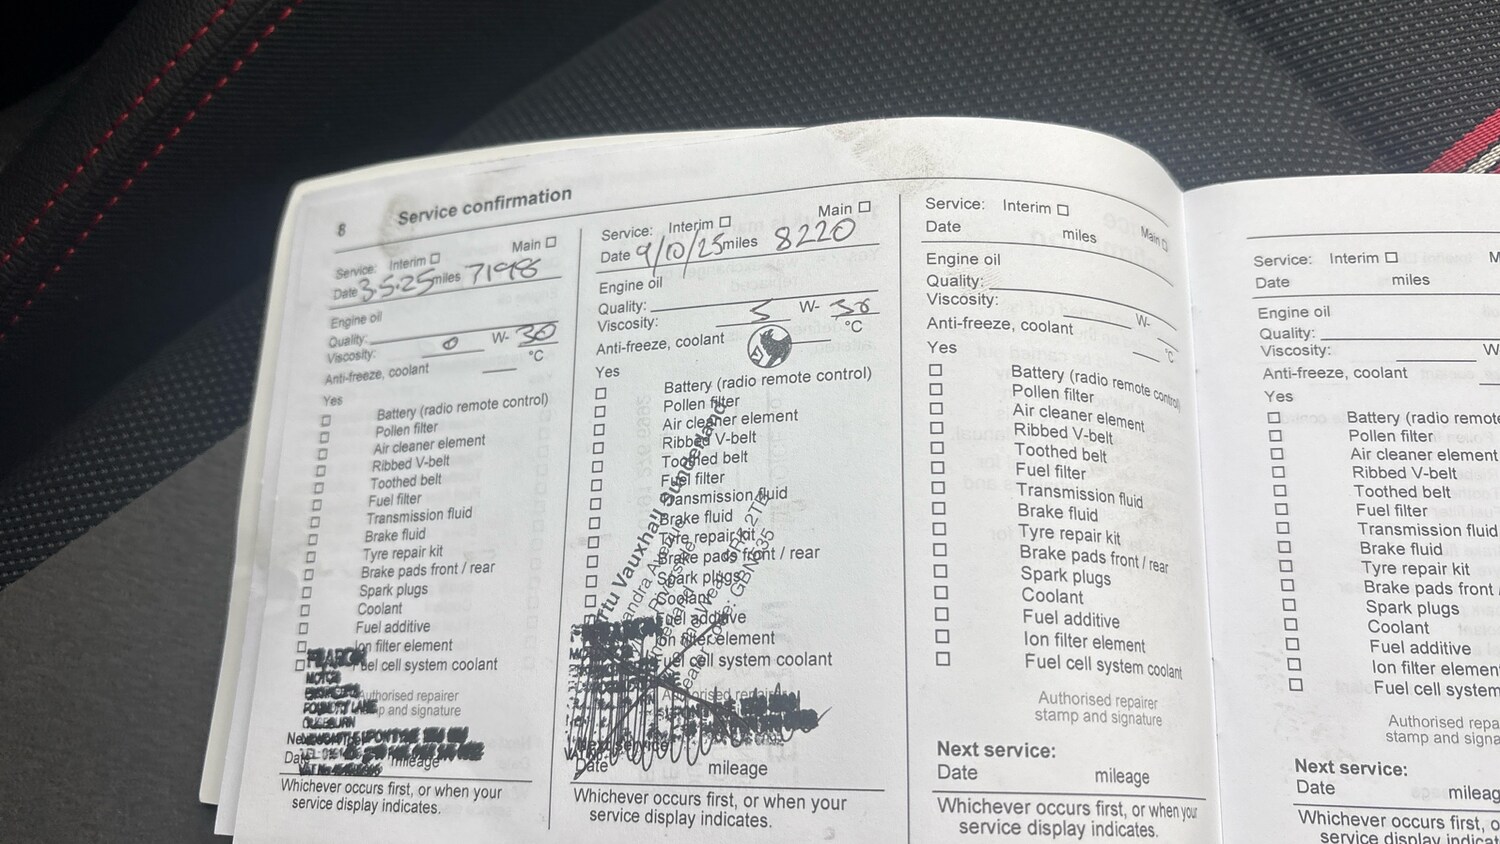 8 Service confirmation
Service: Interim Main
Date 3.5.25 miles 7198
Engine oil
Quality:
Viscosity: 0 W- 30
Anti-freeze, coolant °C
Yes
Battery (radio remote control)
Pollen filter
Air cleaner element
Ribbed V-belt
Toothed belt
Fuel filter
Transmission fluid
Brake fluid
Tyre repair kit
Brake pads front / rear
Spark plugs
Coolant
Fuel additive
Ion filter element
Fuel cell system coolant
Authorised repairer
and signature
Date mileage
Whichever occurs first, or when your
service display indicates.
Service: Interim Main
Date 9/10/25 miles 8220
Engine oil
Quality:
Viscosity: 5 W- 30
Anti-freeze, coolant °C
Yes
Battery (radio remote control)
Pollen filter
Air cleaner element
Ribbed V-belt
Toothed belt
Fuel filter
Transmission fluid
Brake fluid
Tyre repair kit
Brake pads front / rear
Spark plugs
Coolant
Fuel additive
Ion filter element
Fuel cell system coolant
Vauxhall Sunderland
Next service
Date mileage
Whichever occurs first, or when your
service display indicates.
Service: Interim Main
Date miles
Engine oil
Quality:
Viscosity: W-
Anti-freeze, coolant °C
Yes
Battery (radio remote control)
Pollen filter
Air cleaner element
Ribbed V-belt
Toothed belt
Fuel filter
Transmission fluid
Brake fluid
Tyre repair kit
Brake pads front / rear
Spark plugs
Coolant
Fuel additive
Ion filter element
Fuel cell system coolant
Authorised repairer
stamp and signature
Next service:
Date mileage
Whichever occurs first, or when your
service display indicates.
Service: Interim M
Date miles
Engine oil
Quality:
Viscosity: W
Anti-freeze, coolant
Yes
Battery (radio remote
Pollen filter
Air cleaner element
Ribbed V-belt
Toothed belt
Fuel filter
Transmission fluid
Brake fluid
Tyre repair kit
Brake pads front /
Spark plugs
Coolant
Fuel additive
Ion filter element
Fuel cell system
Authorised repa
stamp and signa
Next service:
Date mileag
Whichever occurs first, o
service display indicat